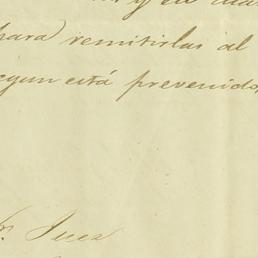 y en
para remitirlas al
segun está prevenido,
Sr. Juez